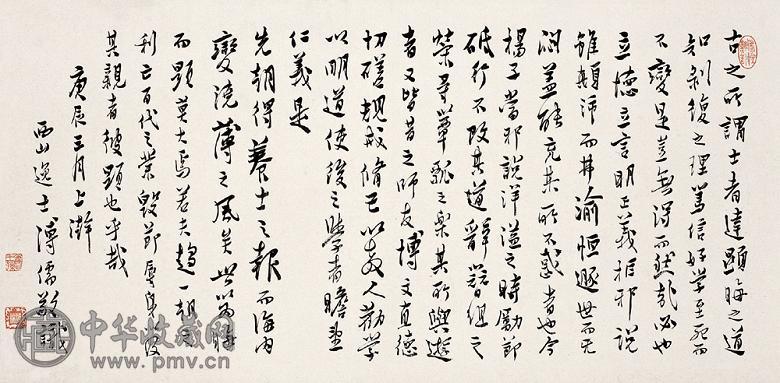 古之所謂士者達顯晦之道
知剝復之理篤信好學至死而
不變是豈無得而然哉必也
立德立言明正義距邪說
雖顛沛而弗渝恒遯世而无
悶蓋能充其所不惑者也今
楊子當邪說洋溢之時勵節
砥行不改其道辭簪組之
榮尋簞瓢之樂其所與遊
者又皆昔之師友博文直德
切磋規戒脩已以教人勸學
以明道使後之學者瞻望
仁義是
先朝得養士之報而海内
變澆薄之風矣此以爲晦
而顯莫大焉若夫趨一朝
利亡百代之業毀節辱身後
其親者彼顯也乎哉
庚辰三月上澣
西山逸士溥儒敬識
中华收藏网
www.pmv.cn